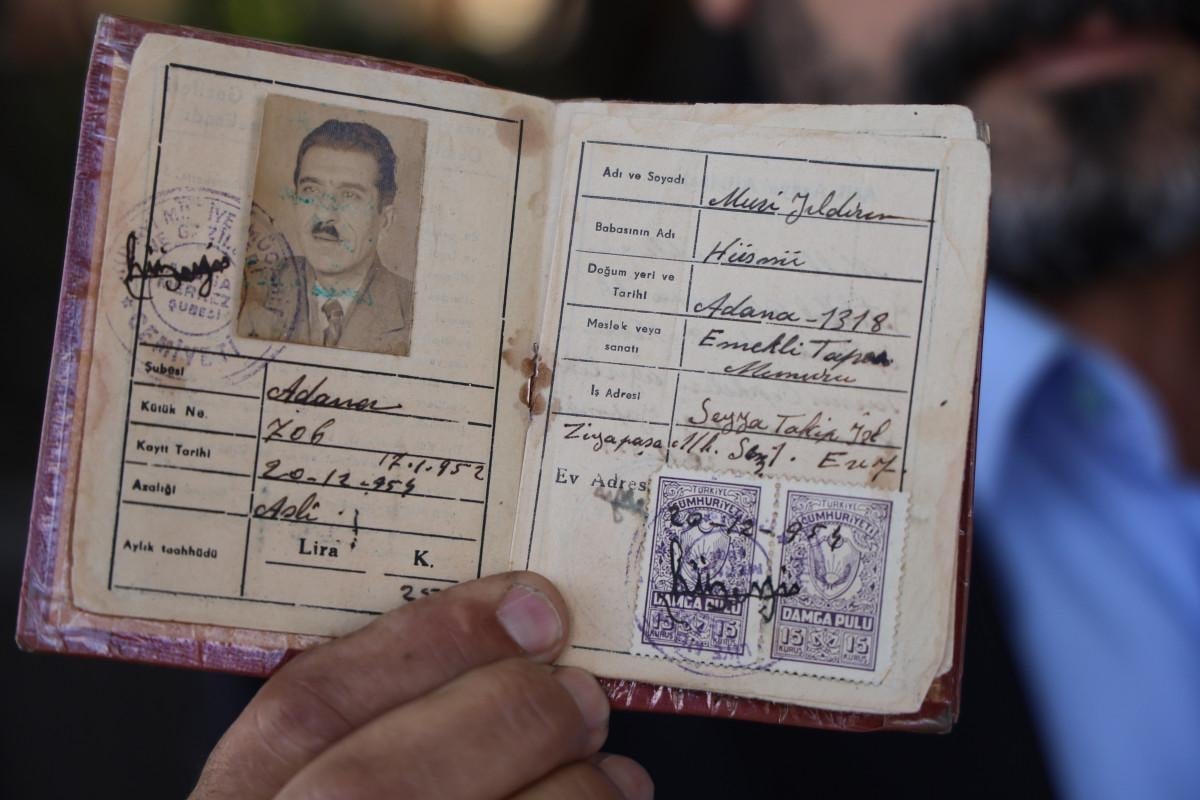 Şubesi Adana
Kütük No. 706
17.1.952
Kayıt Tarihi 20-12-954
Azalığı Asli
Aylık taahhüdü Lira K.
MERKEZ
ŞUBESİ
CEMİYETİ
Adı ve Soyadı Musi Yıldırım
Babasının Adı Hüsnü
Doğum yeri ve
Tarihi Adana-1318
Meslek veya
sanatı Emekli Tapu
Memuru
İş Adresi
Ziyapaşa Mh.
Ev Adres
TÜRKİYE TÜRKİYE
CUMHURİYETİ CUMHURİYETİ
20-12-954
DAMGA PULU DAMGA PULU
15 15 15 15
KURUŞ KURUŞ